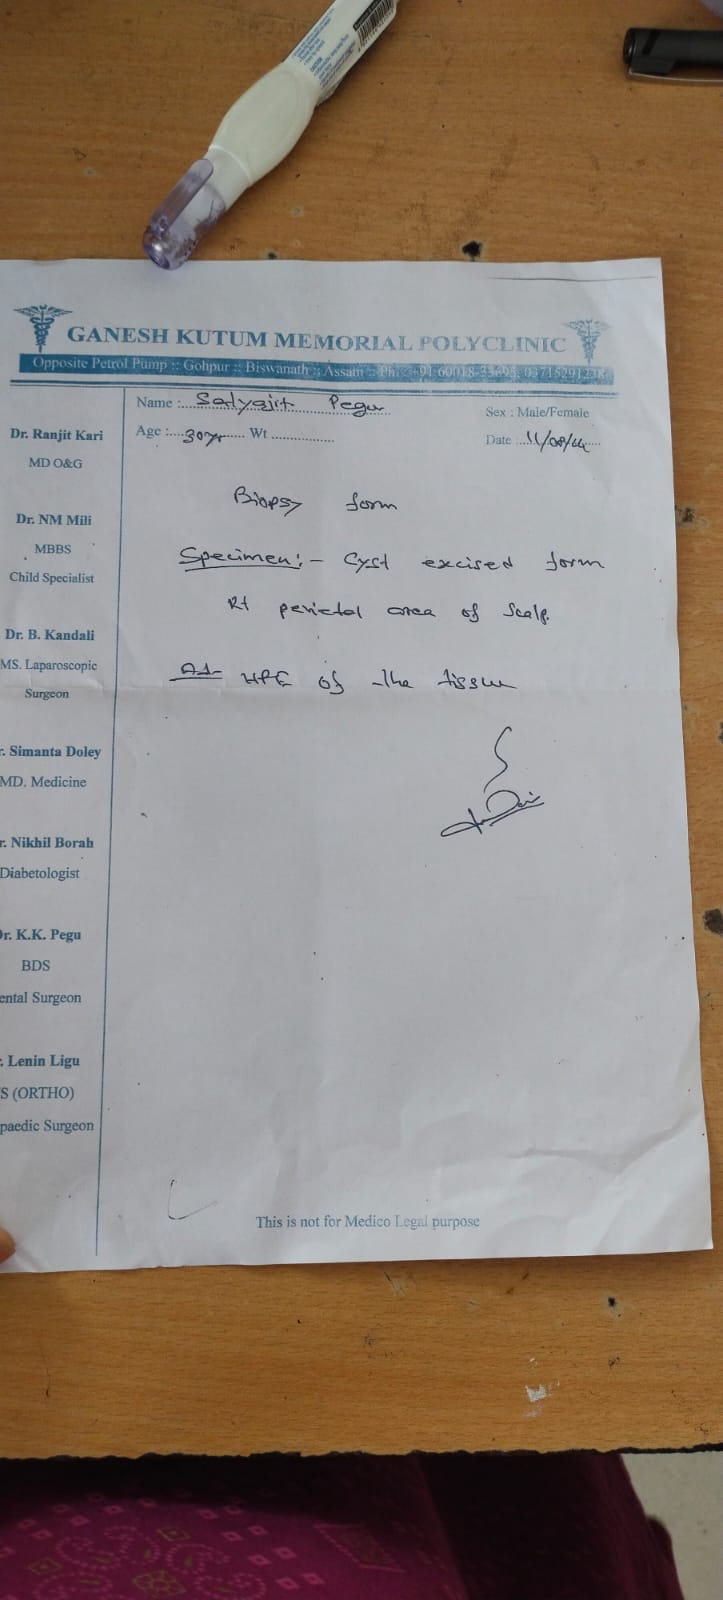 GANESH KUTUM MEMORIAL POLYCLINIC
Opposite Petrol Pump :: Gohpur :: Biswanath :: Assam :: Ph.: +91-60018-33695, 03715291238
Name : Satyajit Pegu
Sex : Male/Female
Age : 30yr Wt
Date : 11/08/24
Dr. Ranjit Kari
MD O&G
Dr. NM Mili
MBBS
Child Specialist
Dr. B. Kandali
MS. Laparoscopic
Surgeon
r. Simanta Doley
MD. Medicine
r. Nikhil Borah
Diabetologist
Dr. K.K. Pegu
BDS
ental Surgeon
. Lenin Ligu
S (ORTHO)
paedic Surgeon
Biopsy form
Specimen:- Cyst excised form
Rt perietal area of Scalp.
HPE of the tissue
This is not for Medico Legal purpose